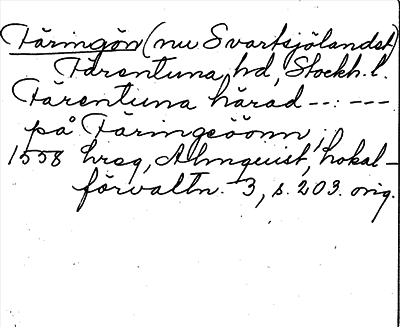 Färingön (nu Svartsjölandet)
Färentuna hd, Stockh. l.
Färentuna härad --: ---
på Färingeöönn,
1558 hrsg, Almquist, Lokal-
förvaltn. 3, s. 203. orig.